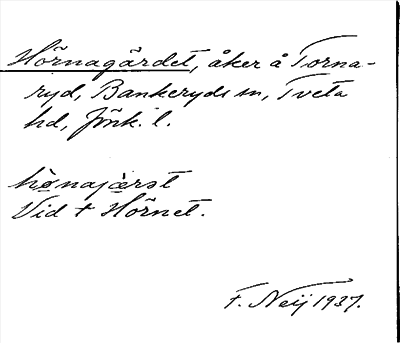 Hörnagärdet, åker å Torna-
ryd, Bankeryds sn, Tveta
hd, Jönk. l.
hø̀najæ̀rst
Vid + Hörnet.
F. Neij 1937.